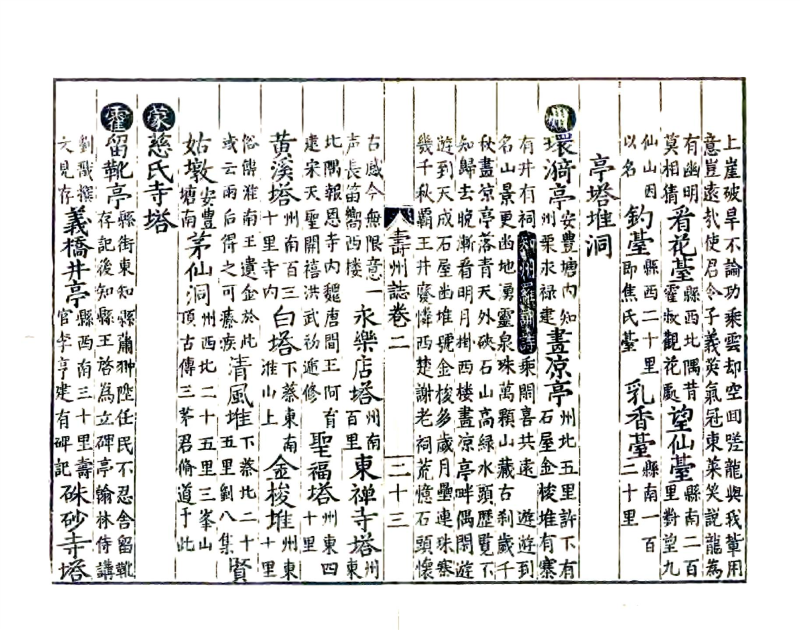 上崖破旱不論功乘雲却空回嗟龍與我輩用
意豈遠哉使召令子義英氣冠東萊笑説龍為
有幽明
莫相猜看花臺縣西北隅昔霍叔觀花處望仙臺縣南二百里對望九
仙山因
以名釣臺縣西二十里即焦氏臺乳香臺縣南一百二十里
亭塔堆洞
州環漪亭安豐塘内知州栗永禄建晝凉亭州北五里許下有石屋金梭堆有寨
有井有祠知州羅詩乘閑喜共遠遊遊到
名山景更幽地湧靈泉珠萬顆山藏古刹歲千
秋晝凉亭落青天外硤石山高緑水頭歷覧不
知歸去晚漸看明月掛西樓晝凉亭畔偶閑遊
遊到天成石屋幽堆號金梭多歲月壘連珠寨
幾千秋霸王井廢憐西楚謝老祠荒憶石頭懷
壽州誌卷二 二十三
古感今無恨意一
声長笛嚮西樓永樂店塔州南百里東禅寺塔州東
北隅報恩寺内魏唐間王阿育
建宋天聖開禧洪武初逓修聖福塔州東四十里
黄溪塔州南百三十里寺内白塔下蔡東南淮山上金梭堆州東十里
俗傳淮南王遺金於此
或云雨后得之可療疾清風堆下蔡北二十五里劉八集賢
姑墩安豐塘南茅仙洞州西北二十五里三峯山頂古傳三茅君脩道于此
蒙慈氏寺塔
霍留靴亭縣街東知縣蕭翀陞任民不忍舍留靴存記後知縣王啓為立碑亭翰林侍講
劉戩撰
文見存義橋井亭縣西南三十里壽官李亨建有碑記硃砂寺塔